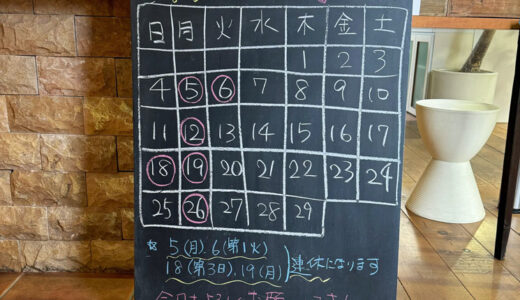 日 月 火 水 木 金 土
1 2 3
4 5 6 7 8 9 10
11 12 13 14 15 16 17
18 19 20 21 22 23 24
25 26 27 28 29
5(月).6(第1火)
18(第3日).19(月)
連休になります